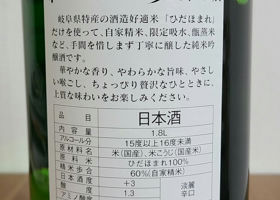 岐阜県特産の酒造好適米「ひだほまれ」
だけを使って、自家精米、限定吸水、甑蒸米
など、手間を惜しまず丁寧に醸した純米吟
醸酒です。
華やかな香り、やわらかな旨味、やさし
い喉ごし、ちょっぴり贅沢なひとときに、
上質な味わいをお楽しみください。
品目 日本酒
内容量 1.8L
アルコール分 15度以上16度未満
原材料名 米(国産)、米こうじ(国産米)
原料米 ひだほまれ100%
精米歩合 60%(自家精米)
日本酒度 +3 淡麗
酸度 1.3 辛口
アミノ酸度